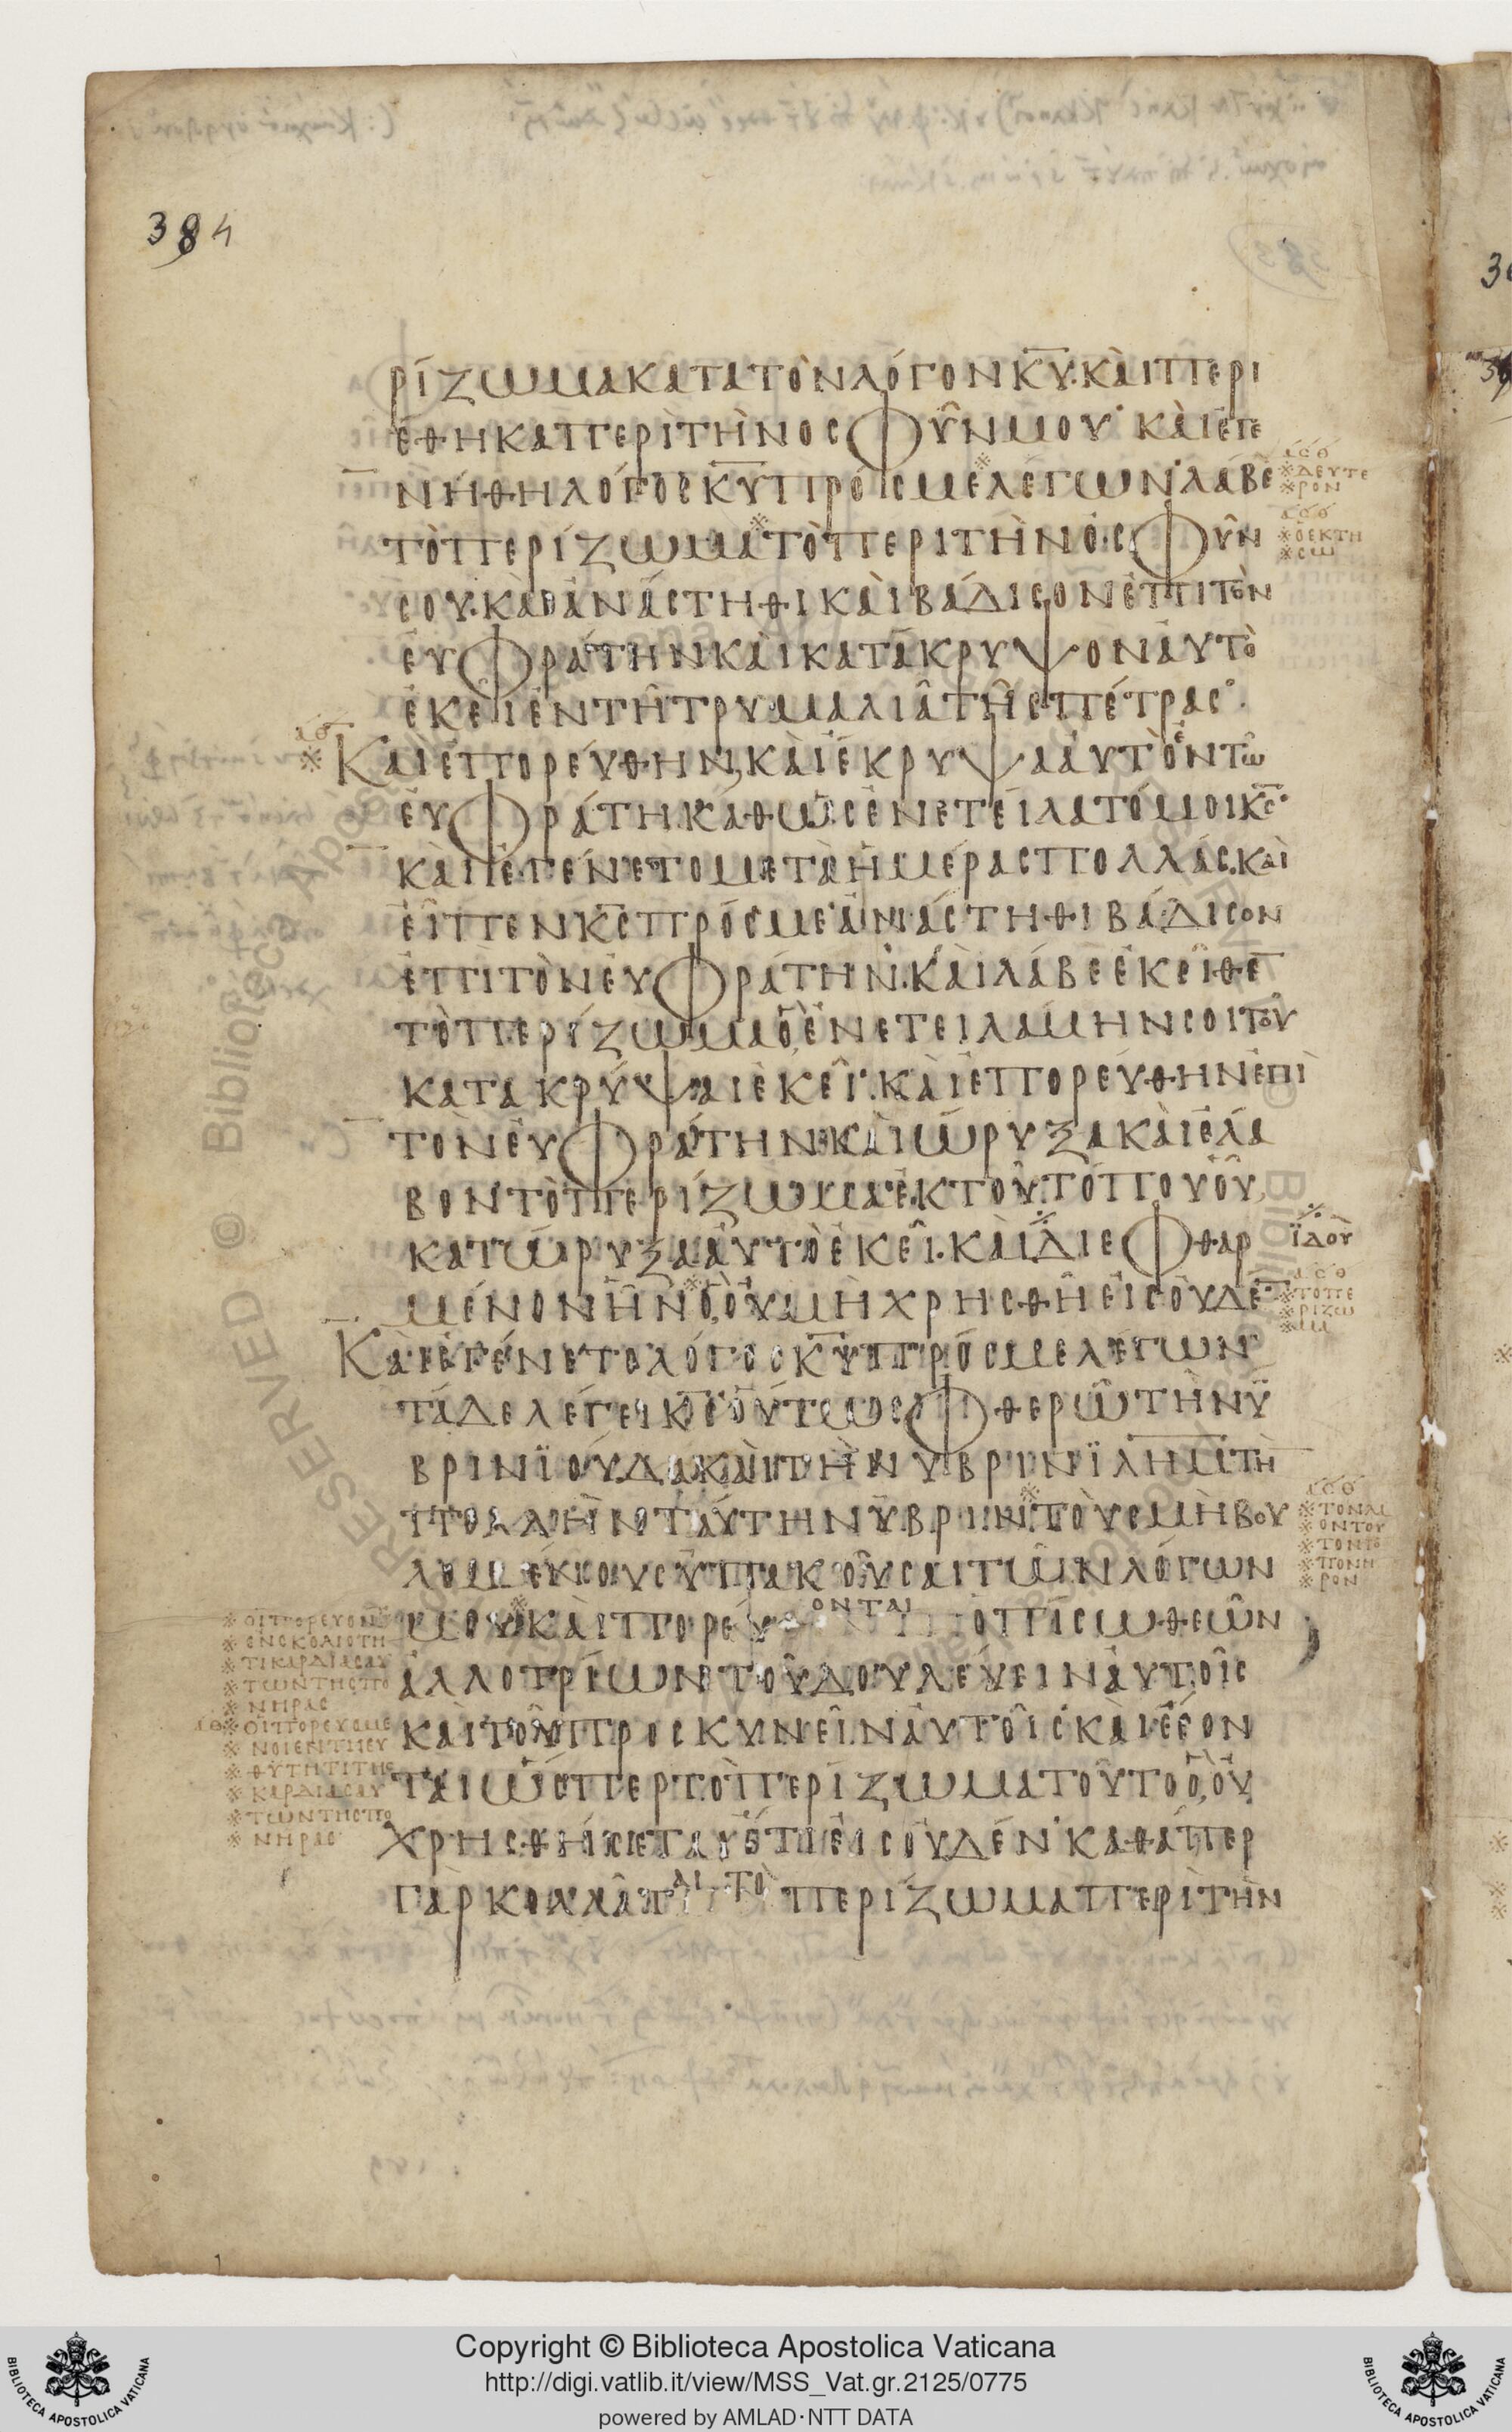 384
ρίζωμα κατὰ τὸν λόγον κ̅υ̅. καὶ περι
έθηκα περὶ τὴν ὀσφῦν μου· καὶ ἐγε
νήθη λόγος κ̅υ̅ πρός με λέγων· λάβε
τὸ περίζωμα τὸ περὶ τὴν ὀσφῦν
σου. καὶ ἀνάστηθι καὶ βάδισον ἐπὶ τὸν
ἐυφράτην καὶ κατάκρυψον ἀυτὸ
ἐκεῖ ἐν τῆ τρυμαλιᾶ τῆς πέτρας·
Καὶ ἐπορεύθην, καὶ ἔκρυψα ἀυτὸ ἐν τῶ
ἐυφράτη. καθὼς ἐνετείλατό μοι κ̅ς̅·
καὶ ἐγένετο μετὰ ἡμέρας πολλάς. καὶ
εἶπεν κ̅ς̅ πρός με ἀνάστηθι βάδισον
ἐπὶ τὸν ἐυφράτην. καὶ λάβε ἐκεῖθε̅
τὸ περίζωμα ὃ ἐνετειλάμην σοι τοῦ
κατακρύψαι ἐκεῖ· καὶ ἐπορεύθην ἐπὶ
τὸν ἐυφράτην καὶ ὤρυξα καὶ ἔλα
βον τὸ περίζωμα ἐκ τοῦ τόπου οὗ
κατώρυξα ἀυτὸ ἐκεῖ. καὶ διεφθαρ
ϊδοὺ
μένον ἦν ὃ οὐ μὴ χρησθῆ εἰς οὐδέ̅·
Καὶ ἐγένετο λόγος κ̅υ̅ πρός με λέγων
τάδε λέγει κ̅ς̅ οὕτως φθερῶ τὴν ὕ
βριν ϊούδα καὶ τὴν ὕβριν ϊ̅λ̅η̅μ̅ τὴ̅
πολλὴν ταύτην ὕβριν τοὺς μὴ βου
λομένους ὑπακούσαι τῶν λόγων
μου καὶ πορεύονται ὀπίσω θεῶν
ἀλλοτρίων τοῦ δουλεύειν ἀυτοῖς
καὶ τοῦ προσκυνεῖν ἀυτοῖς καὶ ἔσον
ται ὥσπερ τὸ περίζωμα τοῦτο ὃ οὐ
χρησθήσεται εἰς οὐδέν· καθάπερ
γὰρ κολλᾶται τὸ περίζωμα περὶ τὴν
ασθ
※ δευτε
※ ρον
ασθ
※ ὃ ἐκτη
※ σω
ασθ
※ το πε
※ ριζω
※ μα
ασθ
※ τον λα
※ ον του
※ τον το
※ πονη
※ ρον
※ οι πορευομε
※ εν σκολιοτη
※ τι καρδιας αυ
※ των της πο
※ νηρας
αθ ※ οι πορευομε
※ νοι εν τη ευ
※ θυτητι της
※ καρδιας αυ
※ των της πο
※ νηρας
Copyright © Biblioteca Apostolica Vaticana
http://digi.vatlib.it/view/MSS_Vat.gr.2125/0775
powered by AMLAD·NTT DATA
BIBLIOTECA APOSTOLICA VATICANA
BIBLIOTECA APOSTOLICA VATICANA